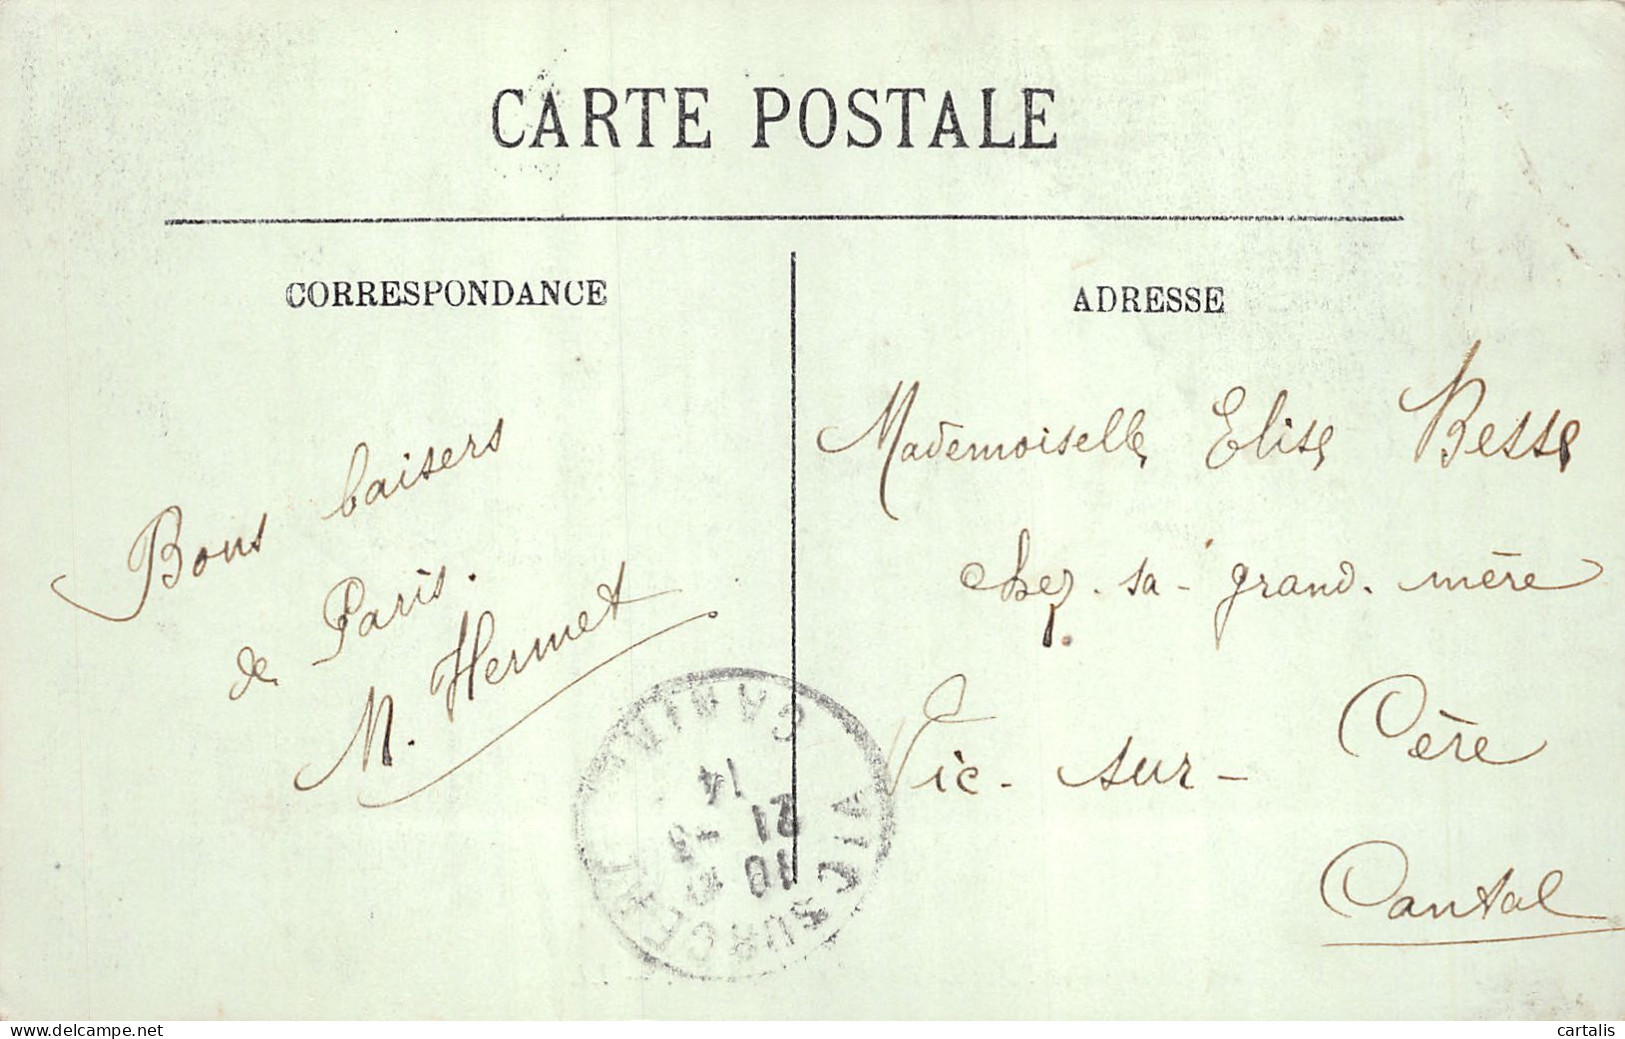 CARTE POSTALE
CORRESPONDANCE
Bons baisers
de Paris.
M. Hermet
ADRESSE
Mademoiselle Elise Besse
chez sa grand-mère
Vic-sur-Cère
Cantal
VIC SUR CERE
CANTAL
10
21 -3
14
delcampe.net
cartalis